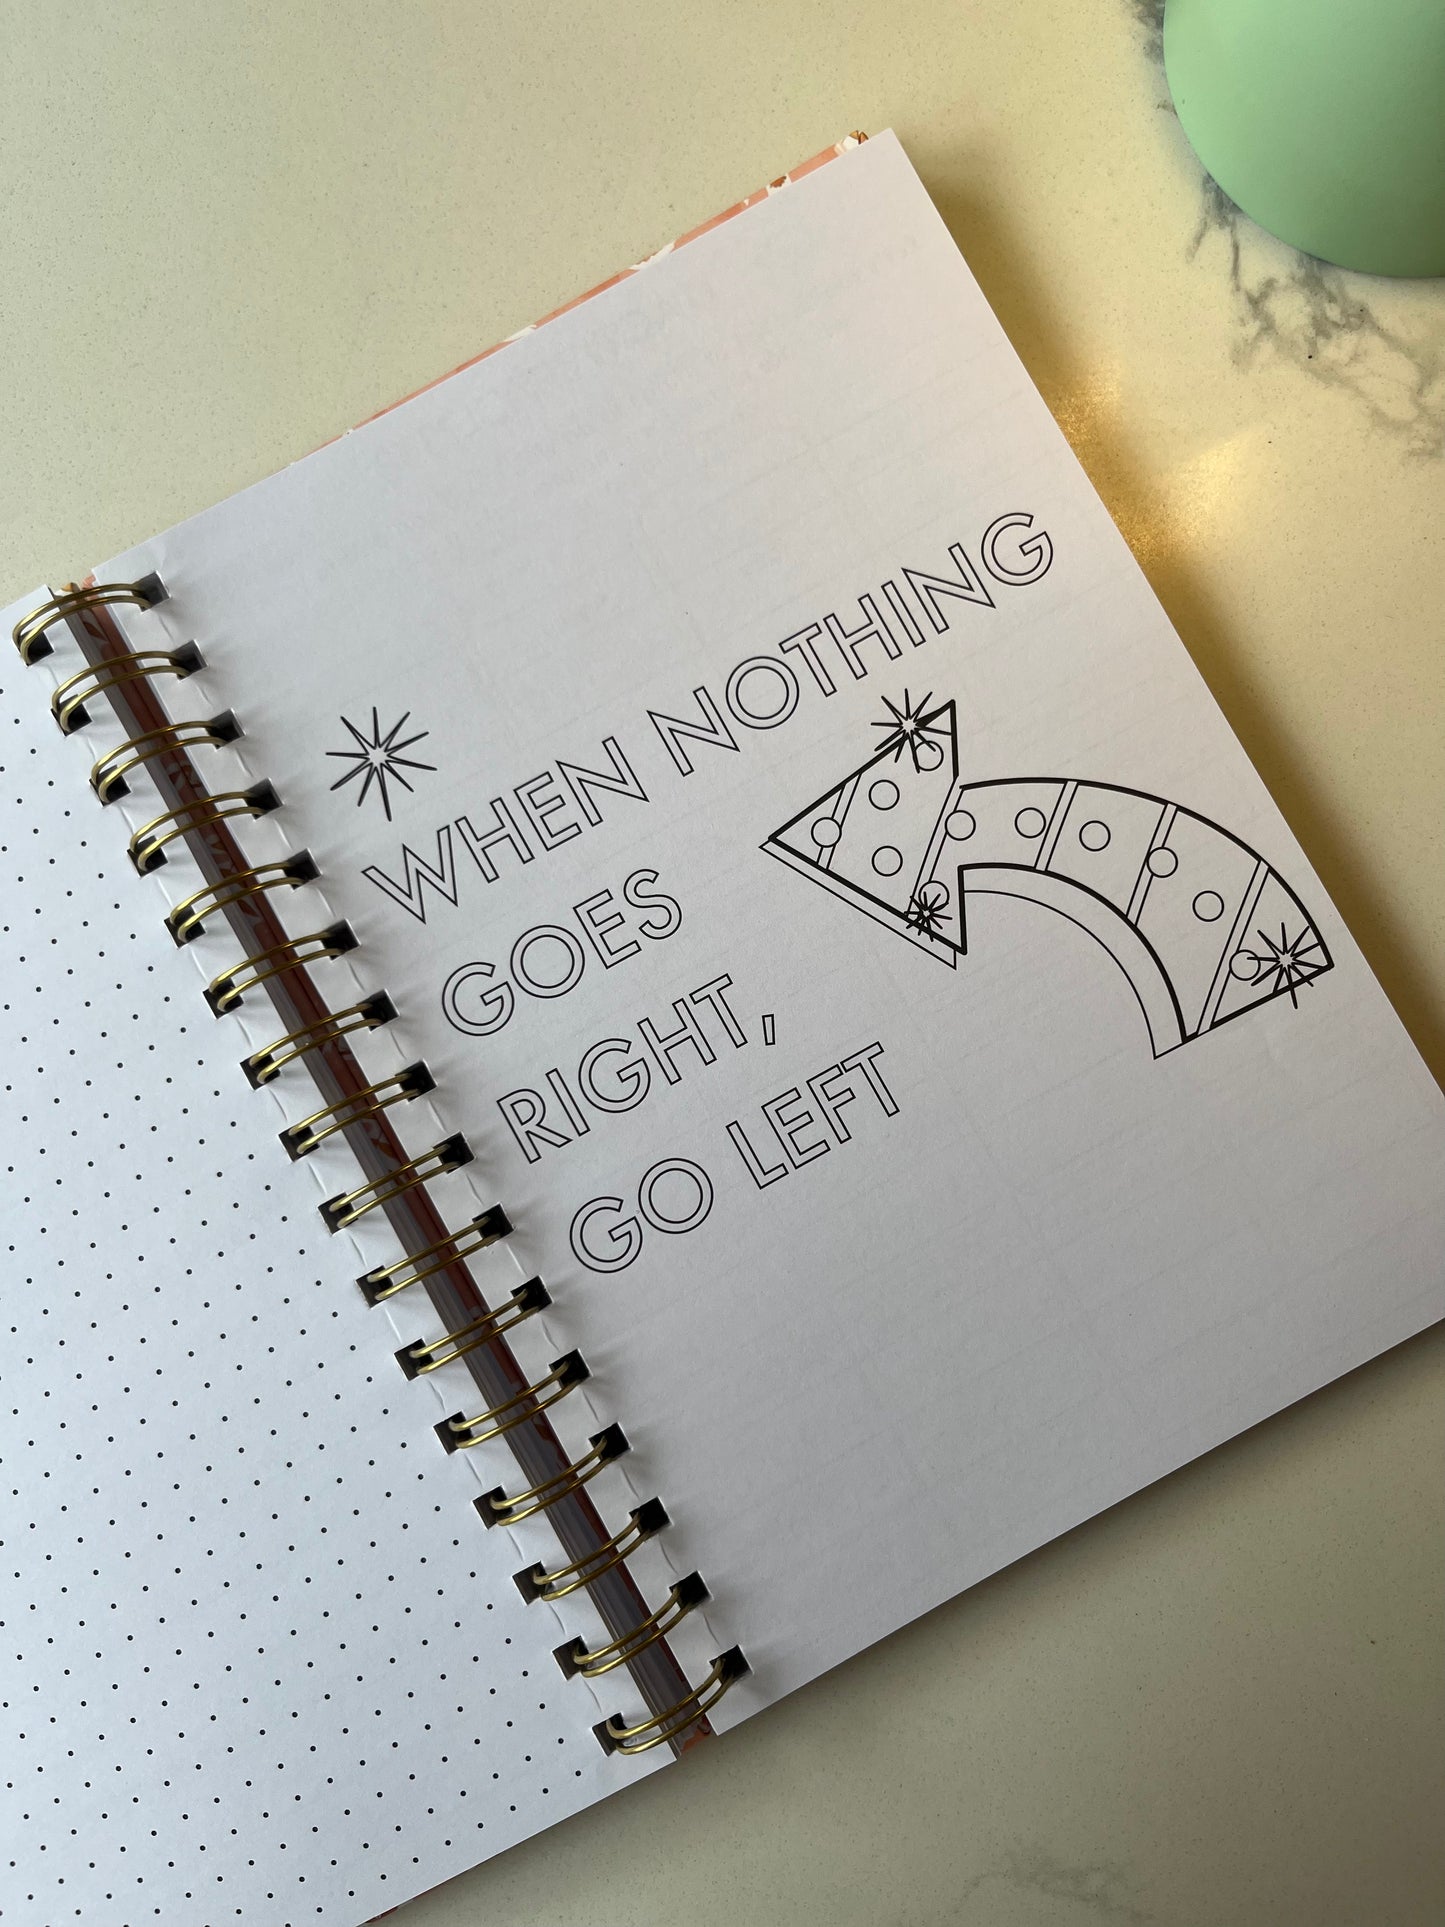 WHEN NOTHING
GOES
RIGHT,
GO LEFT